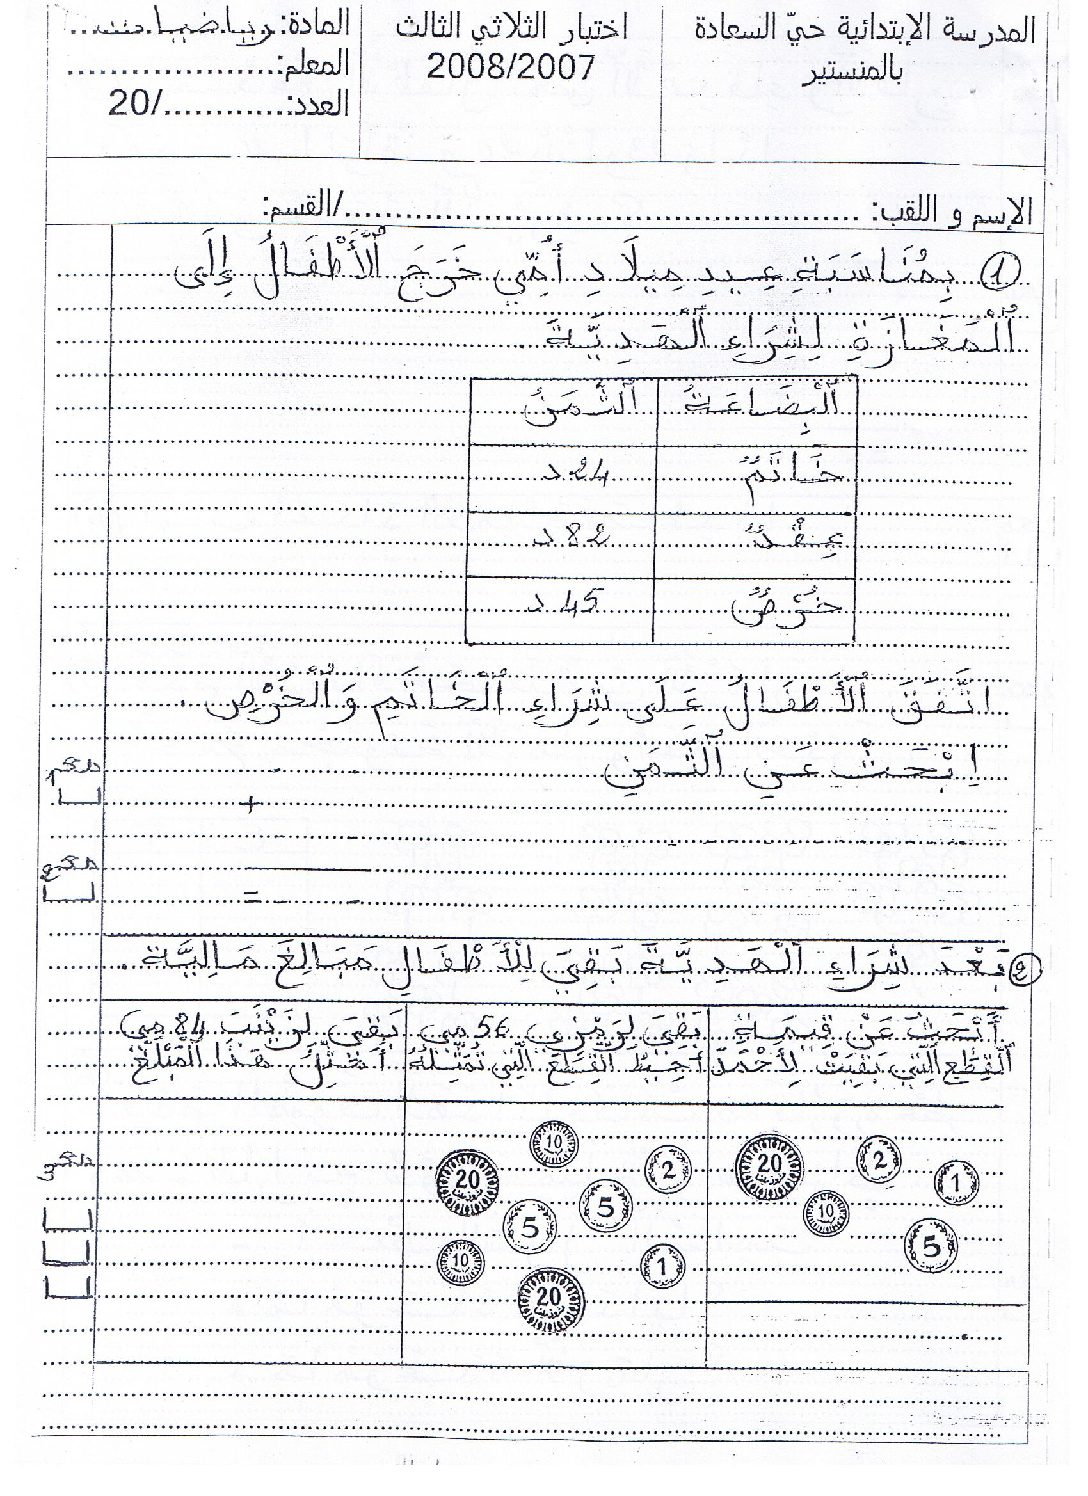 المدرسة الإبتدائية حيّ السعادة
بالمنستير
اختبار الثلاثي الثالث
2008/2007
المادة: رياضيات
المعلم:....................
العدد:............/20
الإسم و اللقب: ................................................/القسم:
① بِمُنَاسَبَةِ عِيدِ مِيلَادِ أُمِّي خَرَجَ ٱلْأَطْفَالُ إِلَى
ٱلْمَغَازَةِ لِشِرَاءِ ٱلْهَدِيَّةَ.
ٱلْبِضَاعَةُ ٱلثَّمَنُ
خَاتَمٌ 24 د
عِقْدٌ 82 د
خُرْصٌ 45 د
اتَّفَقَ ٱلْأَطْفَالُ عَلَى شِرَاءِ ٱلْخَاتَمِ وَٱلْخُرْصِ.
اِبْحَثْ عَنِ ٱلثَّمَنِ
مع1
+
مع2
=
② بَعْدَ شِرَاءِ ٱلْهَدِيَّةَ بَقِيَ لِلْأَطْفَالِ مَبَالِغَ مَالِيَّة.
أَبْحَثُ عَنْ قِيمَةِ
ٱلْقِطَعِ ٱلَّتِي بَقِيَتْ لِأَحْمَدَ
بَقِيَ لِرَمْزِي 56 مي
أُحِيطُ ٱلْقِطَعَ ٱلَّتِي تُمَثِّلُهُ
بَقِيَ لِزَيْنَبَ 84 مي
أُمَثِّلُ هَذَا ٱلْمَبْلَغَ
20 2 1
10 5
10
20 2
5 5
10 1
20
مع3